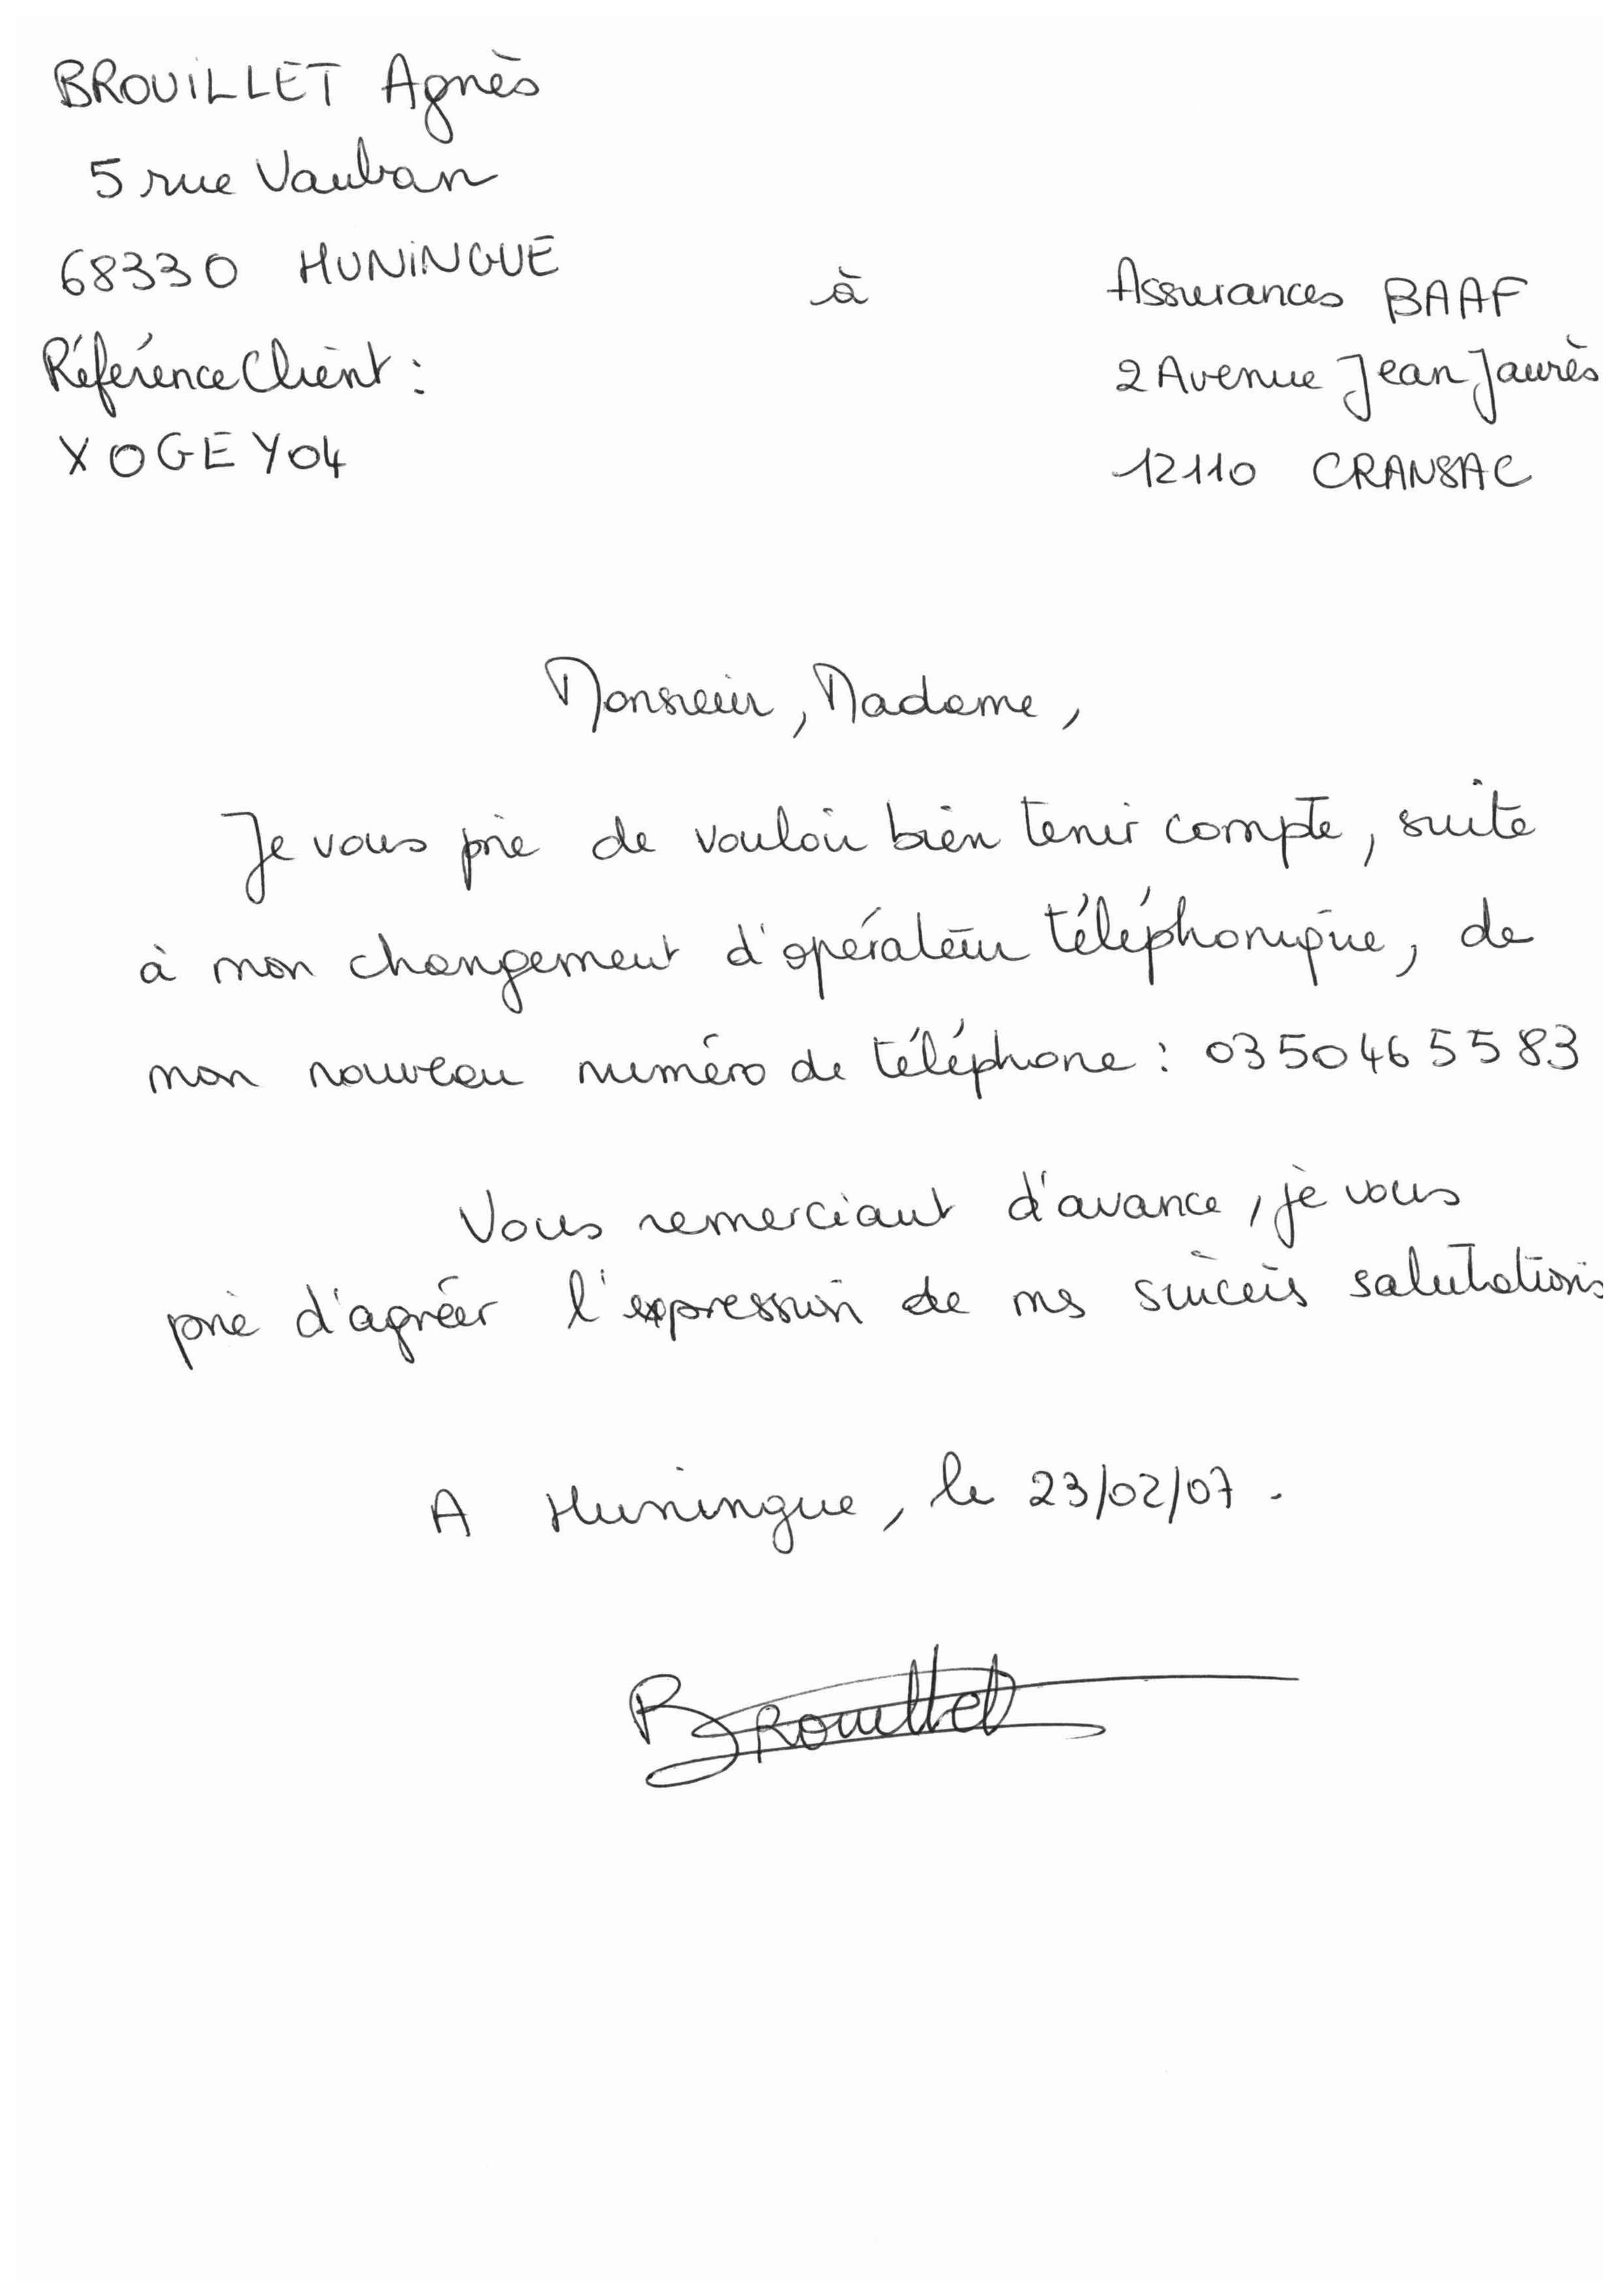 BROUILLET Agnès
5 rue Vauban
68330 HUNINGUE
Référence Client :
XOGEY04
à
Assurances BAAF
2 Avenue Jean Jaurès
12110 CRANSAC
Monsieur, Madame,
Je vous prie de vouloir bien tenir compte, suite
à mon changement d'opérateur téléphonique, de
mon nouveau numéro de téléphone : 0350465583
Vous remerciant d'avance, je vous
prie d'agréer l'expression de mes sincères salutations
A Huningue, le 23/02/07.
Brouillet